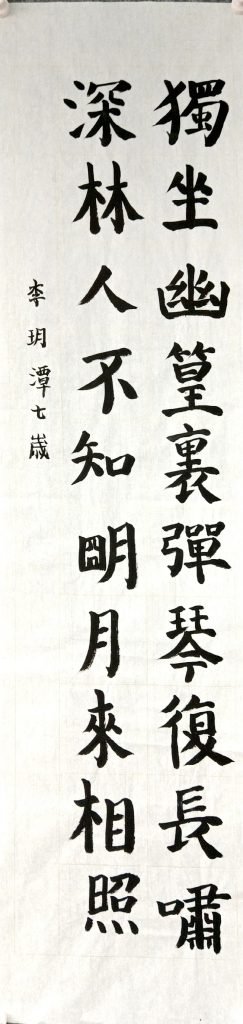 獨坐幽篁裏彈琴復長嘯
深林人不知明月來相照
李玥潭七歲